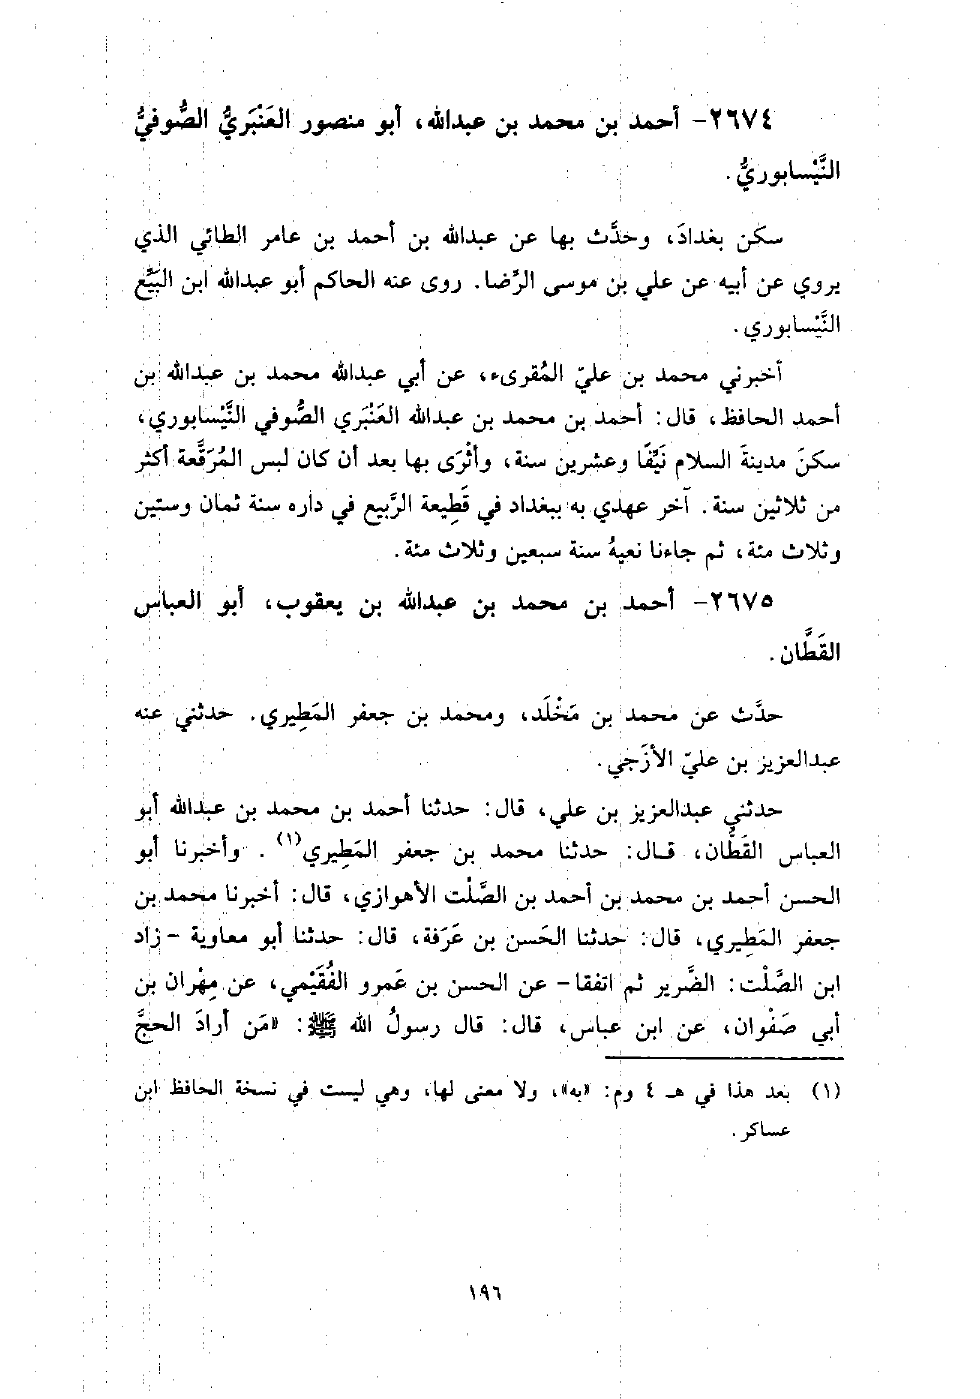 ٢٦٧٤- أحمد بن محمد بن عبدالله، أبو منصور العَنْبَريُّ الصُّوفيُّ
النَّيْسابوريُّ.
سكن بغدادَ، وحدَّث بها عن عبدالله بن أحمد بن عامر الطائي الذي
يروي عن أبيه عن علي بن موسى الرِّضا. روى عنه الحاكم أبو عبدالله ابن البَيِّع
النَّيْسابوري.
أخبرني محمد بن عليّ المُقرىء، عن أبي عبدالله محمد بن عبدالله بن
أحمد الحافظ، قال: أحمد بن محمد بن عبدالله العَنْبَري الصُّوفي النَّيْسابوري،
سكنَ مدينةَ السلام نَيِّفًا وعشرين سنة، وأثْرَى بها بعد أن كان لبس المُرَقَّعة أكثر
من ثلاثين سنة. آخر عهدي به ببغداد في قَطِيعة الرَّبيع في داره سنة ثمان وستين
وثلاث مئة، ثم جاءنا نعيهُ سنة سبعين وثلاث مئة.
٢٦٧٥- أحمد بن محمد بن عبدالله بن يعقوب، أبو العباس
القَطَّان.
حدَّث عن محمد بن مَخْلَد، ومحمد بن جعفر المَطِيري. حدثني عنه
عبدالعزيز بن عليّ الأزَجي.
حدثني عبدالعزيز بن علي، قال: حدثنا أحمد بن محمد بن عبدالله أبو
العباس القَطَّان، قال: حدثنا محمد بن جعفر المَطِيري(١). وأخبرنا أبو
الحسن أحمد بن محمد بن أحمد بن الصَّلْت الأهوازي، قال: أخبرنا محمد بن
جعفر المَطِيري، قال: حدثنا الحَسن بن عَرَفة، قال: حدثنا أبو معاوية -زاد
ابن الصَّلْت: الضَّرير ثم اتفقا- عن الحسن بن عَمرو الفُقَيْمي، عن مِهْران بن
أبي صَفْوان، عن ابن عباس، قال: قال رسولُ الله ﷺ: «مَن أرادَ الحجَّ
(١) بعد هذا في هـ ٤ وم: «به»، ولا معنى لها، وهي ليست في نسخة الحافظ ابن
عساكر.
١٩٦